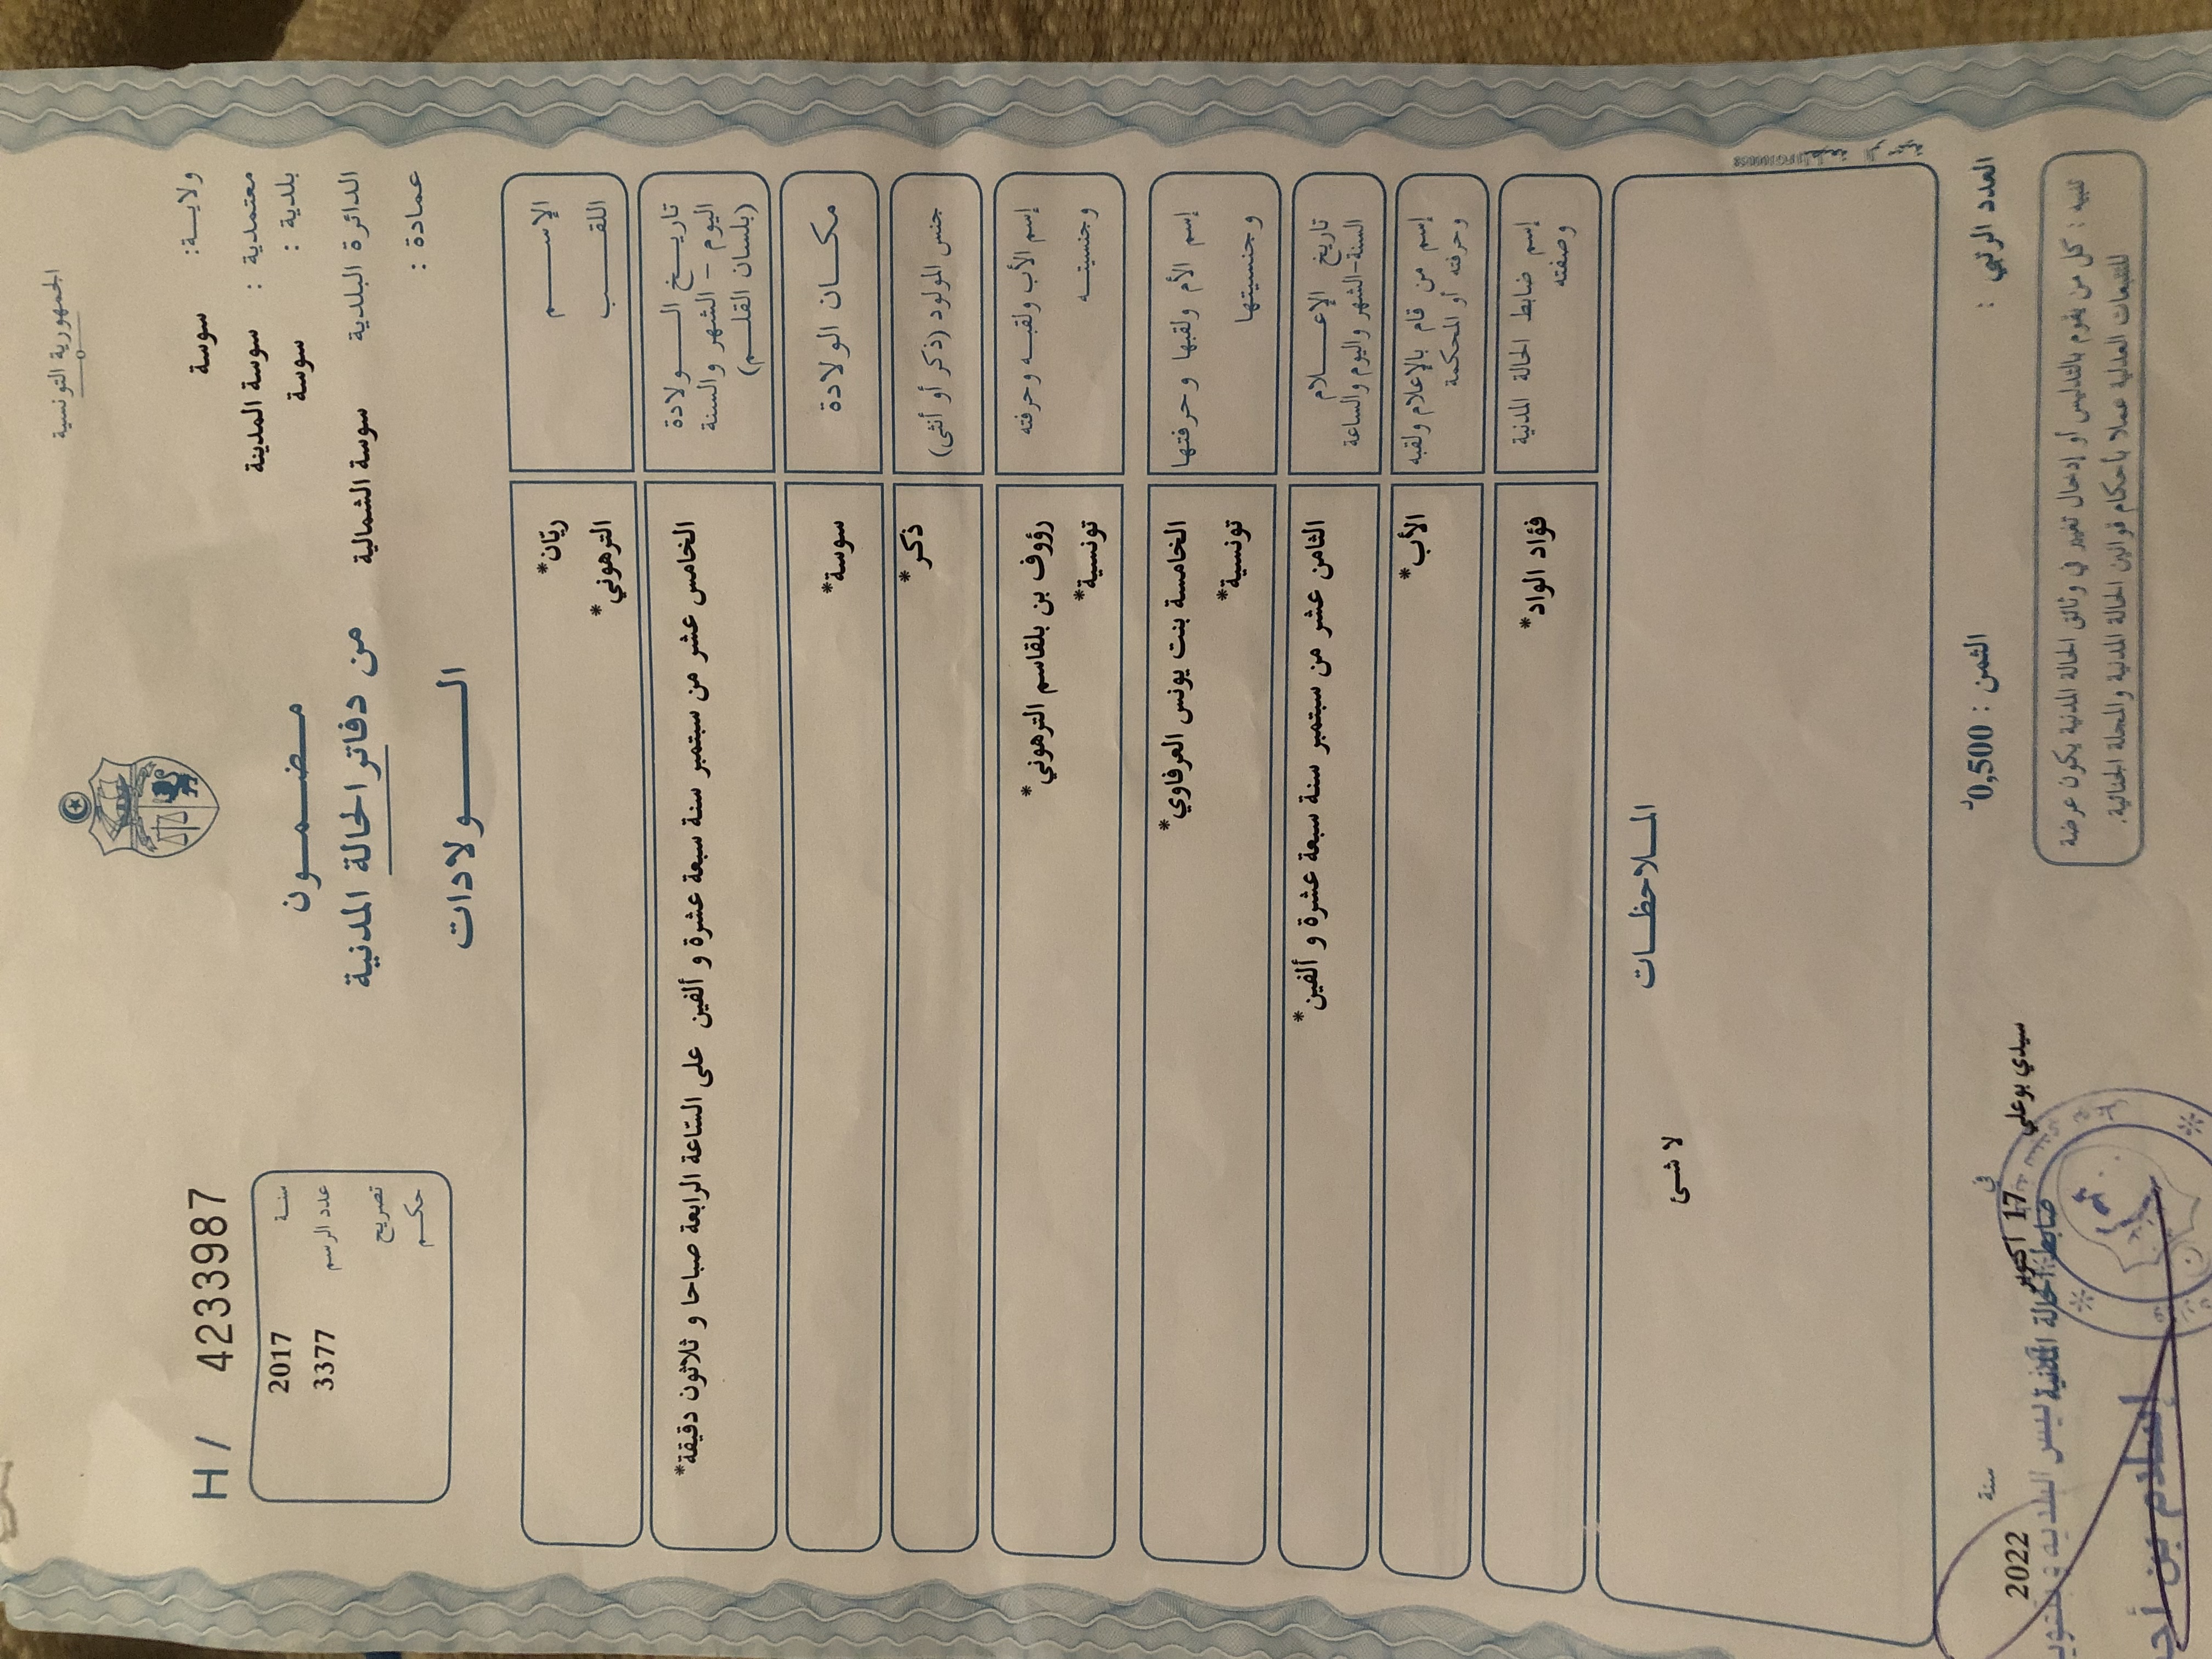 الجمهورية التونسية
ولايــة: سوسة
معتمدية : سوسة المدينة
بلدية : سوسة
الدائرة البلدية سوسة الشمالية
عمادة :
مــضــمــون
من دفاتر الحالة المدنية
الــــولادات
H / 4233987
سنــة 2017
عدد الرسم 3377
تصريح
حكــم
الإســــم ريّان*
اللقــــب الترهوني*
تاريــــخ الــــولادة
اليوم - الشهر والسنة
(بلسان القلــم)
الخامس عشر من سبتمبر سنة سبعة عشرة و ألفين على الساعة الرابعة صباحا و ثلاثون دقيقة*
مكــان الولادة سوسة*
جنس المولود (ذكر أو أنثى) ذكر*
إسم الأب ولقبــه وحرفته رؤوف بن بلقاسم الترهوني*
وجنسيتــه تونسية*
إسم الأم ولقبها وحرفتها الخامسة بنت يونس العرفاوي*
وجنسيتها تونسية*
تاريخ الإعـــلام
السنة-الشهر واليوم والساعة
الثامن عشر من سبتمبر سنة سبعة عشرة و ألفين*
إسم من قام بالإعلام ولقبه
وحرفته أو المحكمة
الأب*
إسم ضابط الحالة المدنية
وصفته
فؤاد الواد*
المــلاحظــات
لا شئ
العدد الرتبي :
الثمن : 0,500د
سيدي بوعلي في 17 اكتوبر سنة 2022
تنبيه : كل من يقوم بالتدليس أو إدخال تغيير في وثائق الحالة المدنية يكون عرضة
للتتبعات العدلية عملا بأحكام قوانين الحالة المدنية والمجلة الجنائية.
ضابط الحالة المدنية
إسلام بن